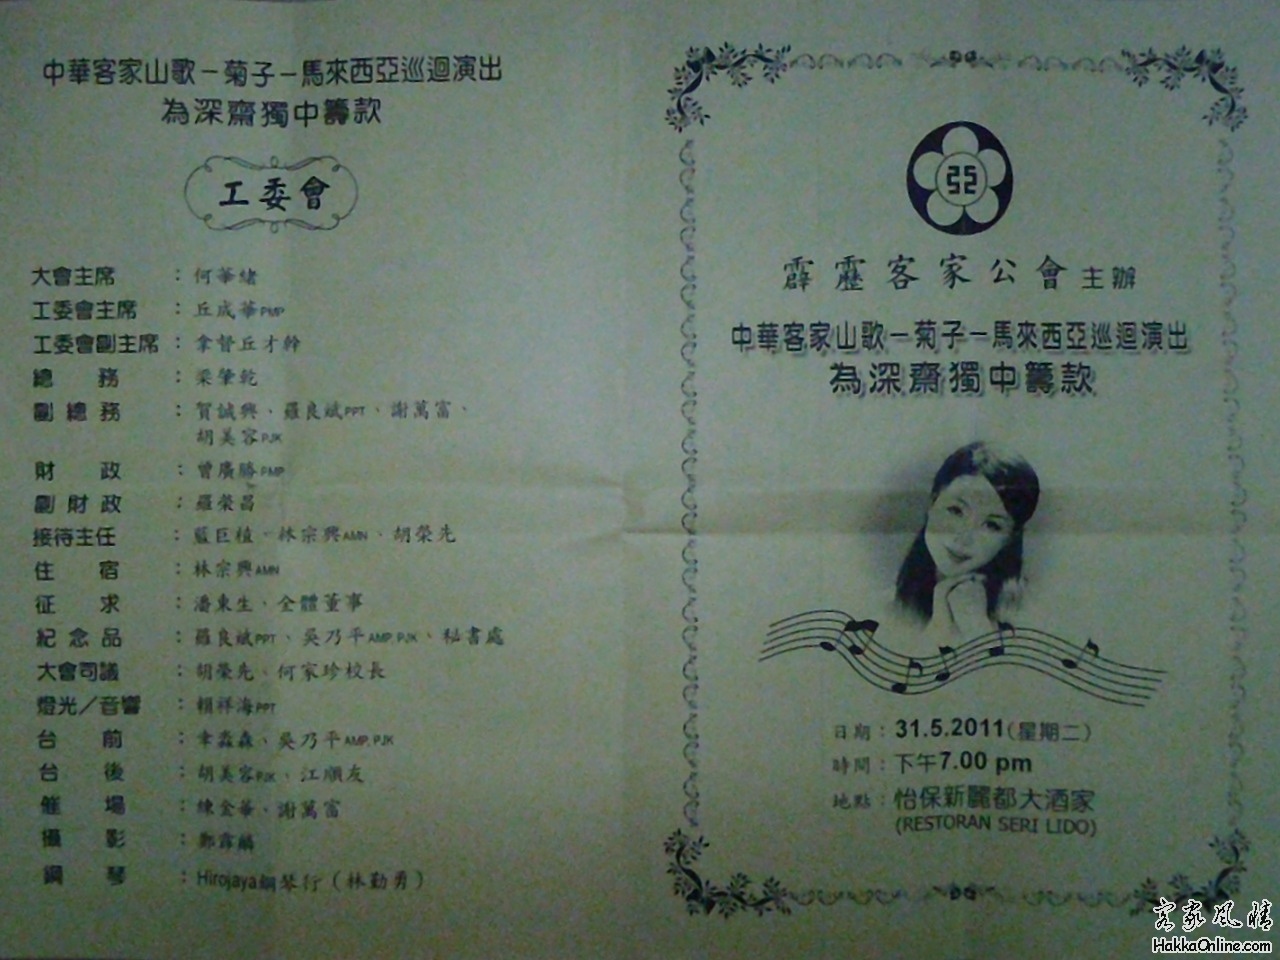 中華客家山歌－菊子－馬來西亞巡迴演出
為深齋獨中籌款
工委會
大會主席 : 何華緒
工委會主席 : 丘成華PMP
工委會副主席 : 拿督丘才幹
總務 : 梁肇乾
副總務 : 賀誠興、羅良斌PPT、謝萬富、
胡美容PJK
財政 : 曾廣勝PMP
副財政 : 羅榮昌
接待主任 : 藍巨植、林宗興AMN、胡榮先
住宿 : 林宗興AMN
征求 : 潘東生、全體董事
紀念品 : 羅良斌PPT、吳乃平AMP,PJK、秘書處
大會司議 : 胡榮先、何家珍校長
燈光／音響 : 賴祥海PPT
台前 : 韋淼森、吳乃平AMP,PJK
台後 : 胡美容PJK、江順友
催場 : 練金華、謝萬富
攝影 : 鄭霖麟
鋼琴 : Hirojaya鋼琴行（林勤勇）
亞
霹靂客家公會主辦
中華客家山歌－菊子－馬來西亞巡迴演出
為深齋獨中籌款
日期 : 31.5.2011(星期二)
時間 : 下午7.00 pm
地點 : 怡保新麗都大酒家
(RESTORAN SERI LIDO)
客家風情
HakkaOnline.com